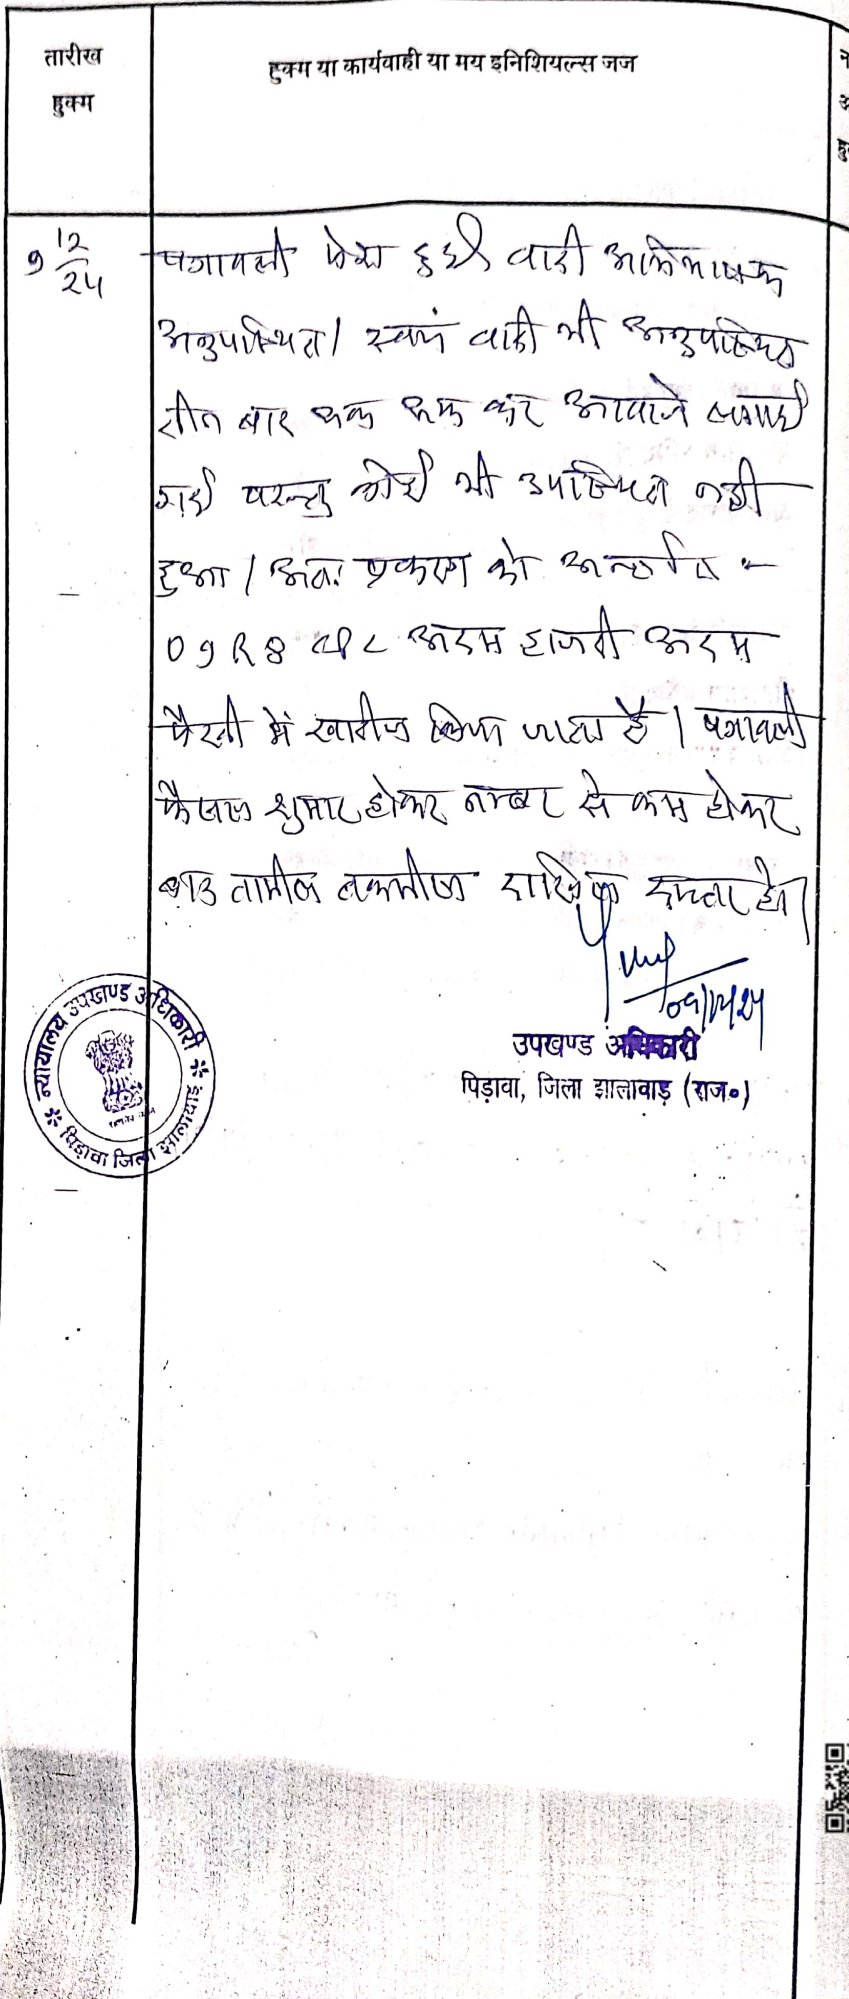 तारीख
हुक्म
हुक्म या कार्यवाही या मय इनिशियल्स जज
9 12/24
पत्रावली पेश हुई वादी अभिभाषक
अनुपस्थित। स्वयं वादी भी अनुपस्थित
तीन बार रूक रूक कर आवाजे लगाई
गई परन्तु कोई भी उपस्थित नही
हुआ। अतः प्रकरण को अन्तर्गत :-
O 9 R 8 CPC अदम हाजरी अदम
पैरवी में खारीज किया जाता है। पत्रावली
फैसल शुमार होकर नम्बर से कम होकर
बाद तामील तकमील दाखिल दफ्तर हो।
09/12/24
उपखण्ड अधिकारी
पिड़ावा, जिला झालावाड़ (राज०)
न्यायालय उपखण्ड अधिकारी
पिड़ावा जिला झालावाड़